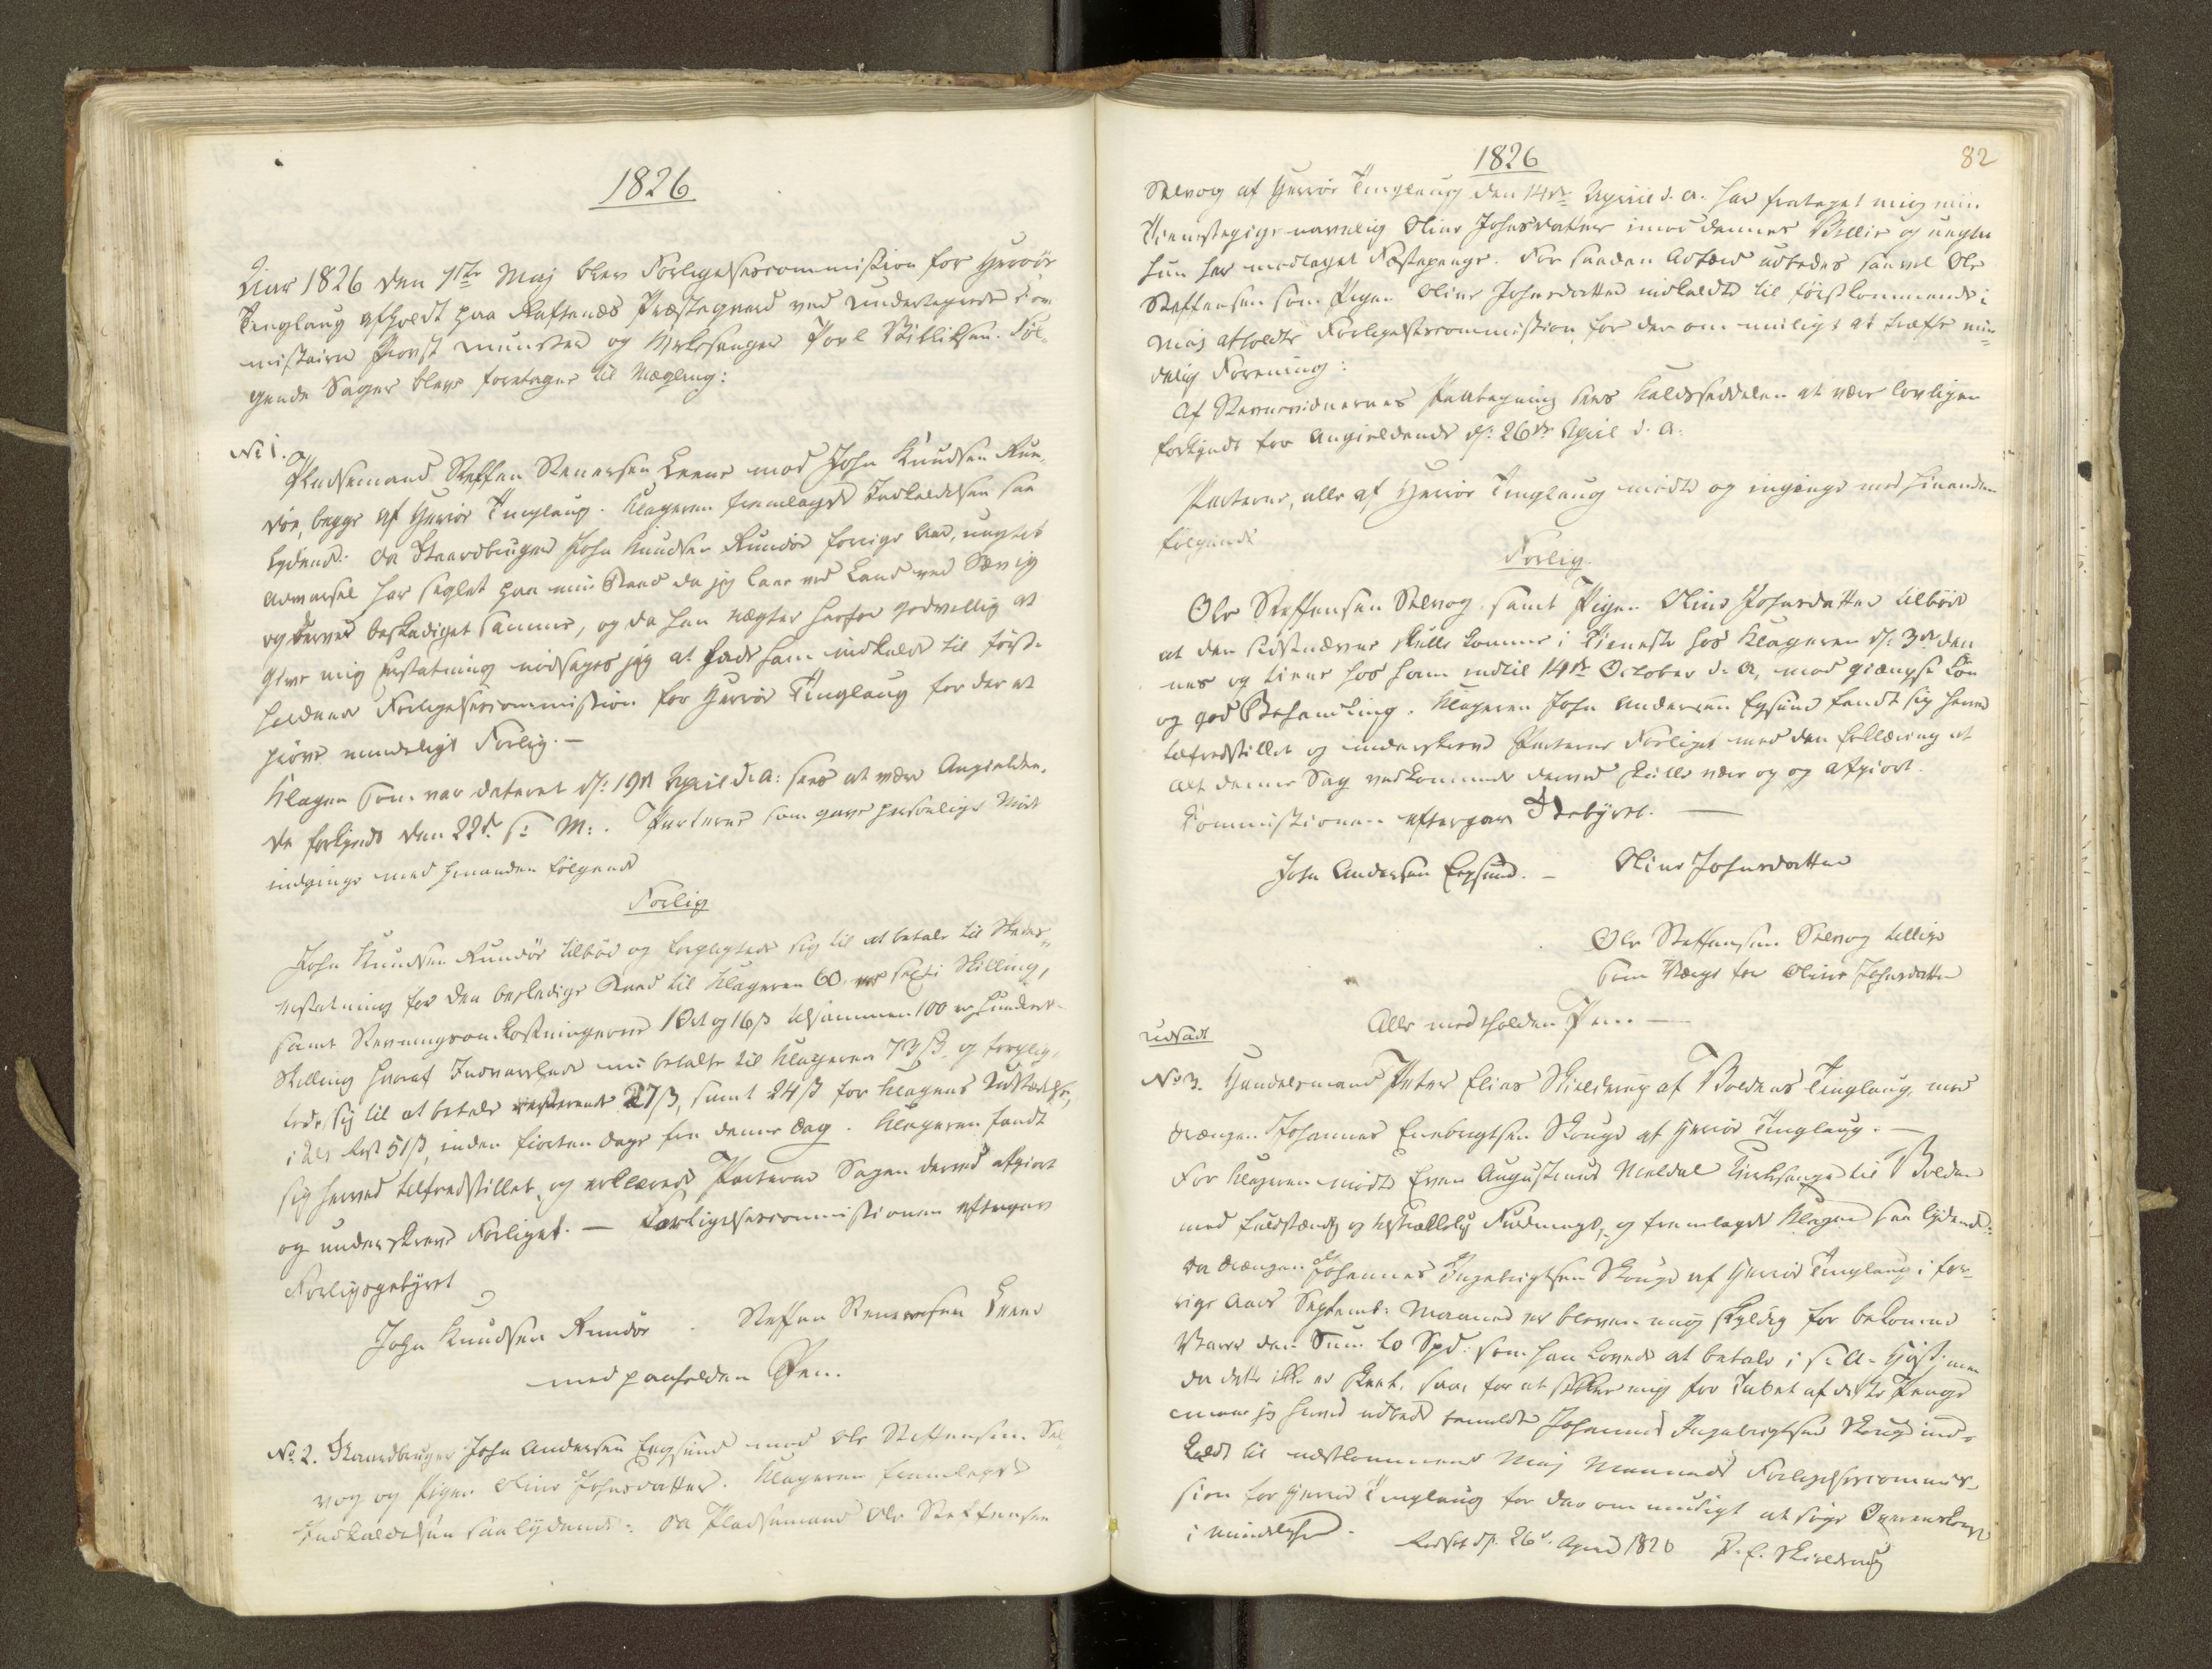 1826
Aar 1826 den 1ste Maj blev Forligelsescommission for Herrøe
Tinglaug afholdt paa Rastenæs Præstegaard ved undertegnede Com
missairer Provst Munster og Kirkesanger Povl Føl-
gende Sager bleve foretagne til Mægling:
No 1.
Pladsemand Steffen Stenersen Leene mod John Knudsen Run-
døe, begge af Herrøe Tinglaug. Klageren fremlagde Indkaldelsen saa
lydende: Da Gaardbruger John Knudsen Rundøe forrige Aar, uagtet
Advarsel har seglet paa min Baad da jeg laae ved Land ved Sævig
og derved beskadiget samme, og da han nægter herfor godvillig at
give mig Erstatning nødsages jeg at lade ham indkalde til først
holdende Forligelsescommission for Herrøe Tinglaug for der at
prøve mindeligt Forlig.—
Klagen som var dateret d: 19de April d: A: sees at være Angielden-
de forkyndt den 22de s: M:. Parterne som gave personligt Møde
indginge med hinanden følgende
Forlig
John Knudsen Rundøe tilbød og forpligtede sig til at betale til Skades-
erstatning for den beskadigede Baad til Klageren 60, sexti Skilling,
samt Stevningsomkostningerne 1 Ort og 16 s tilsammen 100 er hundrede
Skilling hvoraf Indvarslede nu betalte til Klageren 73 s. og forplig-
tede sig til at betale resterende 27 s, samt 24 s for Klagens Udstædelse,
i alt Rest 51 s, inden fiorten Dage fra denne Dag. Klageren fandt
sig herved tilfredsstillet, og erklærede Parterne Sagen derved afgiort
og underskreve Forliget.— Forligelsescommissionen eftergav
Forligsgebyret
John Knudsen Rundøe . Steffen Stenersen Leene
med paaholden Pen.
No 2. Gaardbruger John Andersen Eegsund mod Ole Steffensen Sæl
vog og Pigen Oline Johnsdatter. Klageren fremlagde
Indkaldelsen saalydende: Da Pladsemand Ole Steffensen
1826
82
Selvog af Herrøe Tinglaug den 14de April d. A. har frataget mig min
Tienestepige navnlig Oline Johnsdatter imod dennes Villie og uagtet
hun har modtaget Fæstepenge. For saadan Adfærd udbedes saavel Ole
Steffensen som Pigen Oline Johnsdatter indkaldte til førstkommende i
Maj afholdte Forligelsescommission, for der om mueligt at træffe min-
delig Forening:
Af Stevnevidnernes Paategning sees Kaldsseddelen at være lovligen
forkyndt for Angieldende d: 26de April d. A.
Parterne, alle af Herrøe Tinglaug mødte og indginge med hinanden
følgende
Forlig
Ole Steffensen Selvog samt Pigen Oline Johnsdatter tilbød
at den sidstnævnte skulle komme i Tieneste hos Klageren d: 3de den-
nes og tiene hos ham indtil 14de October d. A, mod giængse Løn
og god Behandling. Klageren John Andersen Eegsund fandt sig herved
tilfredsstillet og underskreve Parterne Forliget med den Erklæring at
Alt denne Sag vedkommende derved skulle være og afgiort.
Commissionen eftergav Gebyret.—
John Andersen Eegsund.— Oline Johnsdatter
Ole Steffensen Selvog tillige
som Værge for Oline Johnsdatter
Alle med holden Pen.—
Udsadt
No 3. Handelsmand Peter Elias Skielderup af Boldens Tinglaug, mod
Drengen Johannes Enebrigtsen Skouge af Herrøe Tinglaug.—
For Klageren mødte Even Augustinus Meldal Kirkesanger til Bolden
med fuldstændig og Fuldmagt, og fremlagde Klagen saa lydende:
Da Drengen Johannes Ingebrigtsen Skouge af Herrøe Tinglaug i for-
rige Aars Septemb: Maaned er bleven mig skyldig for bekomne
Varer den Sum to Spd. som han lovede at betale i s. A. Høst: men
da dette ikke er skeet, saa for at sikkre mig for Tabet af disse Penge
maae jeg herved udbede bemeldte Johannes Ingebrigtsen Skouge ind-
kaldt til næstkommende Maj Maaneds Forligelsescommis-
sion for Herrøe Tinglaug for der om mueligt at søge Overenskomst
i Mindelighed.
d. 26de April 1826 P. E. Skielderup